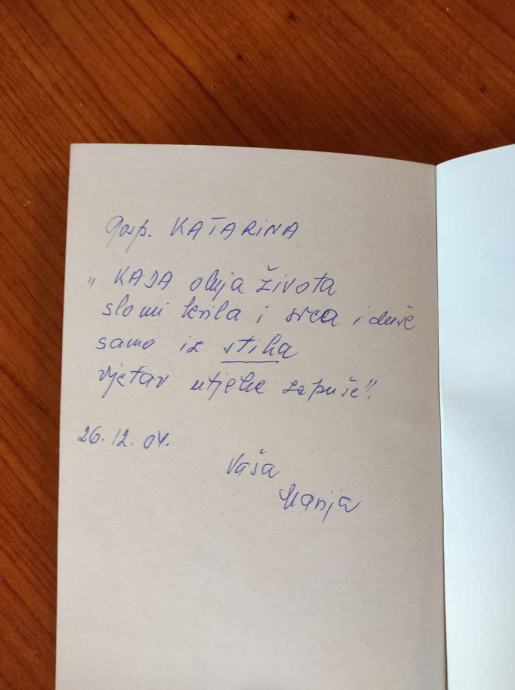 Gosp. KATARINA
„KADA oluja života
slomi krila i srca i duše
samo iz stiha
vjetar utjehe zapuše".
26.12.04.
Vaša
Marija